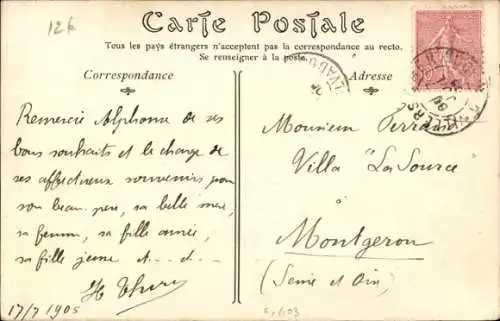 12k
Carte Postale
Tous les pays étrangers n'acceptent pas la correspondance au recto.
Se renseigner à la poste.
Correspondance
Adresse
Remercie Alphonse de ses
bons souhaits et le charge de
ses affectueux souvenirs pour
son beau père, sa belle mère,
sa femme, sa fille aînée,
sa fille jeune et.. d..
17/7 1905
Monsieur
Villa "La Source"
à
Montgeron
(Seine et Oise)